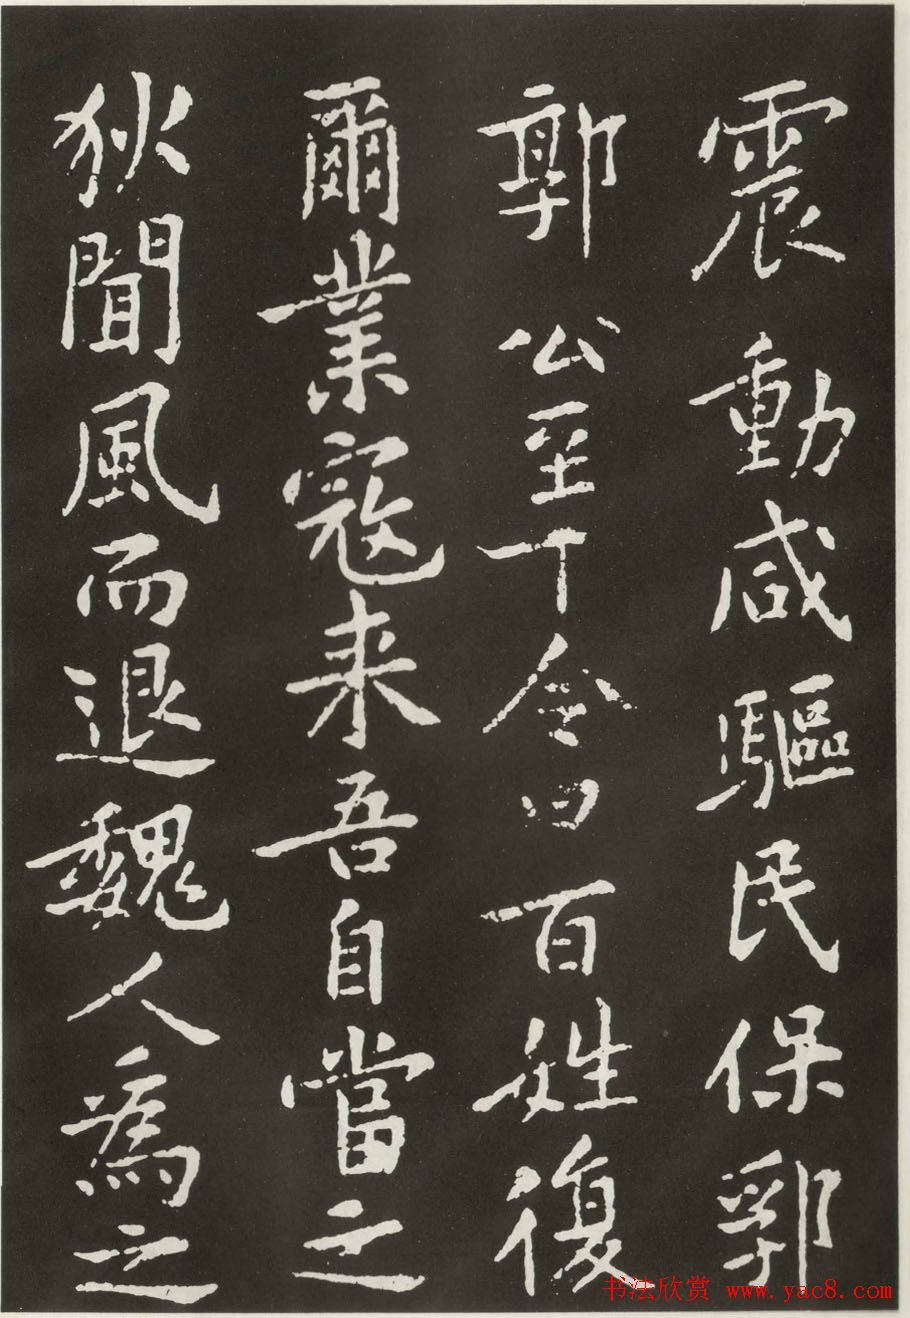 震動咸驅民保郛
郭公至下令曰百姓復
爾業寇来吾自當之
狄聞風而退魏人為之
书法欣赏 www.yac8.com